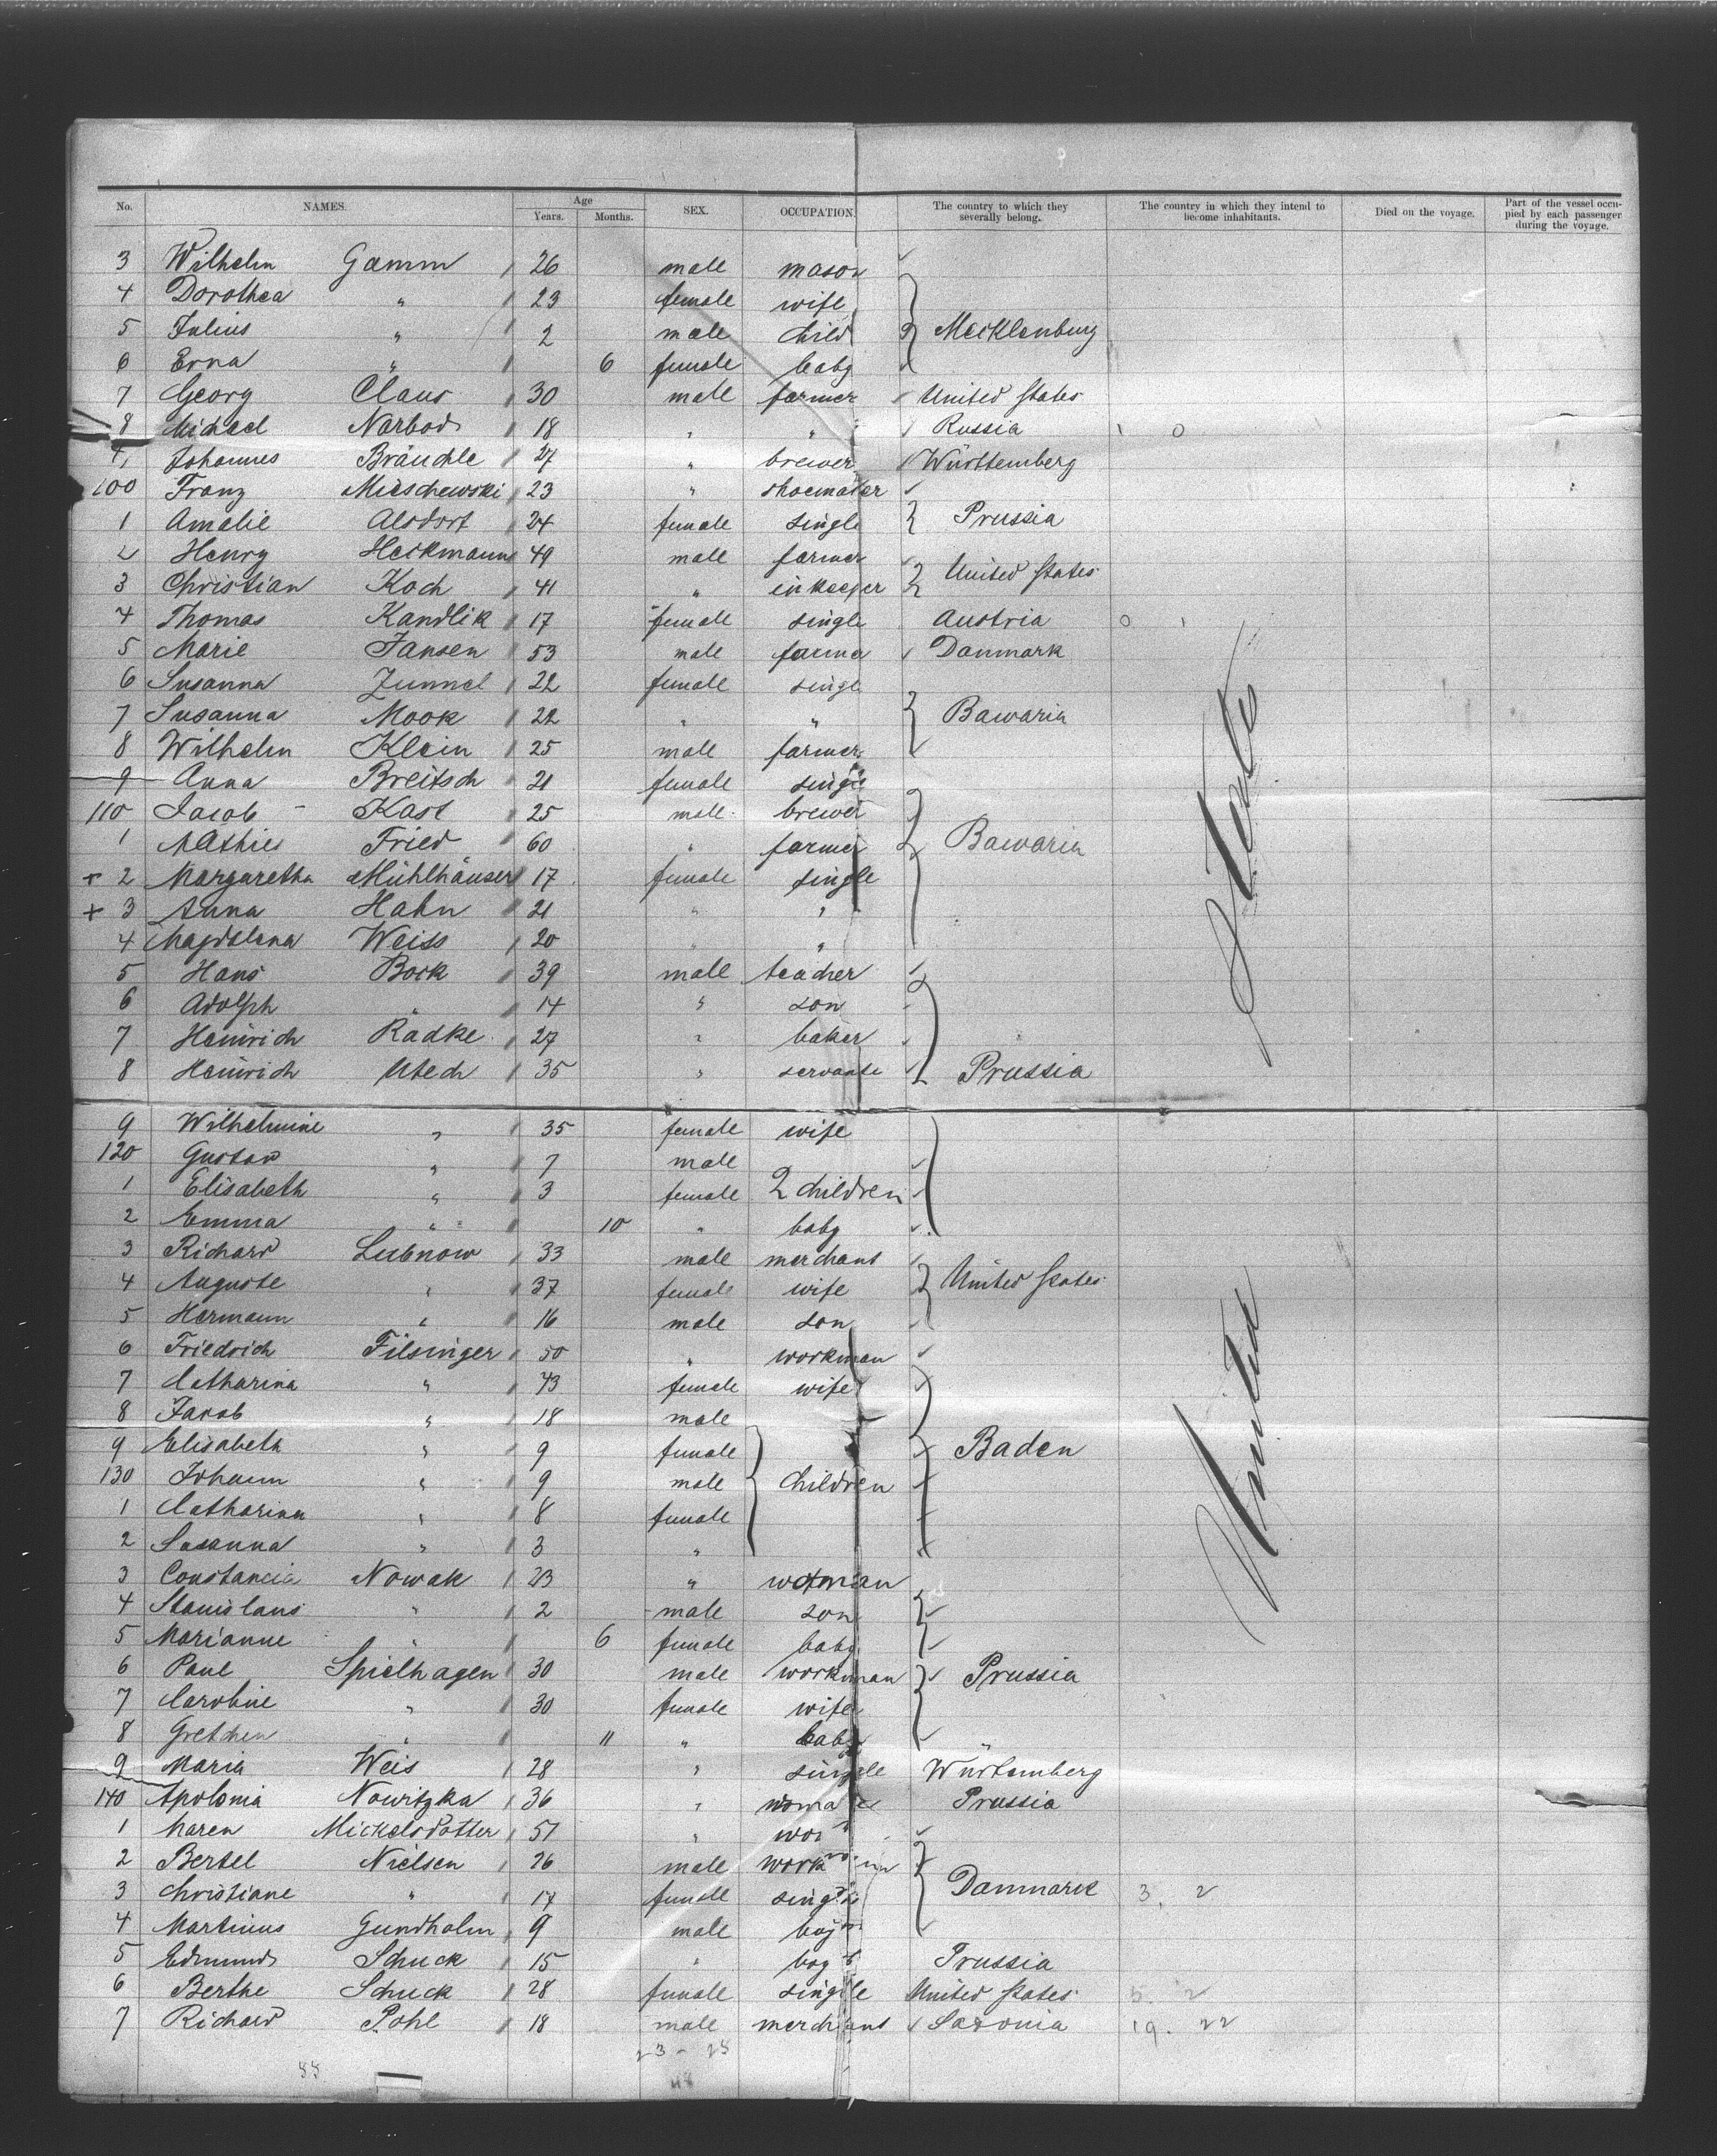 No. NAMES. Age Years. Months. SEX. OCCUPATION. The country to which they severally belong. The country in which they intend to become inhabitants. Died on the voyage. Part of the vessel occupied by each passenger during the voyage.
3 Wilhelm Gamm 26 male mason
4 Dorothea " 23 female wife
5 Julius " 2 male child Mecklenburg
6 Erna " 6 female baby
7 Georg Claus 30 male farmer United States
8 Michael Narbod 18 " " Russia 1 0
9 Johannes Bräuchle 27 " brewer Württemberg
100 Franz Mieschewski 23 " shoemaker
1 Amalie Alsdorf 24 female single Prussia
2 Henry Heckmann 49 male farmer
3 Christian Koch 41 " inkeeper United States
4 Thomas Kandlik 17 female single Austria 0 1
5 Marie Jansen 53 male farmer Danmark
6 Susanna Zummel 22 female single
7 Susanna Mook 22 " " Bawaria
8 Wilhelm Klein 25 male farmer
9 Anna Breitsch 21 female single
110 Jacob Kast 25 male brewer
1 Mathies Fried 60 " farmer Bawaria
+ 2 Margaretha Mühlhäuser 17 female single
+ 3 Anna Hahn 21 " "
4 Magdalena Weiss 20 " "
5 Hans Bock 39 male teacher
6 Adolph " 14 " son
7 Heinrich Radke 27 " baker
8 Heinrich Utech 35 " servante Prussia
States
9 Wilhelmine " 35 female wife
120 Gustav " 7 male
1 Elisabeth " 3 female 2 children
2 Emma " 10 " baby
3 Richard Lubnow 33 male merchant
4 Auguste " 37 female wife United States
5 Hermann " 16 male son
6 Friedrich Filsinger 50 " workman
7 Catharina " 43 female wife
8 Jacob " 18 male
9 Elisabeth " 9 female Baden
130 Johann " 9 male children
1 Catharina " 8 female
2 Susanna " 3 "
United
3 Constancia Nowak 23 " woman
4 Stanislaus " 2 male son
5 Marianne " 6 female baby
6 Paul Spielhagen 30 male workman Prussia
7 Caroline " 30 female wife
8 Gretchen " 11 " baby
9 Maria Weis 28 " single Würtemberg
140 Apolonia Nowitzka 36 " woman Prussia
1 Maren Mickelsdatter 51 "
2 Bertel Nielsen 26 male workman
3 Christiane " 17 female single Danmark 3. 2
4 Martinus Gundholm 9 male boy
5 Edmund Schuck 15 " boy Prussia
6 Berthe Schuck 28 female single United States 5. 2
7 Richard Pohl 18 male merchant Saxonia 19. 22
23 - 25